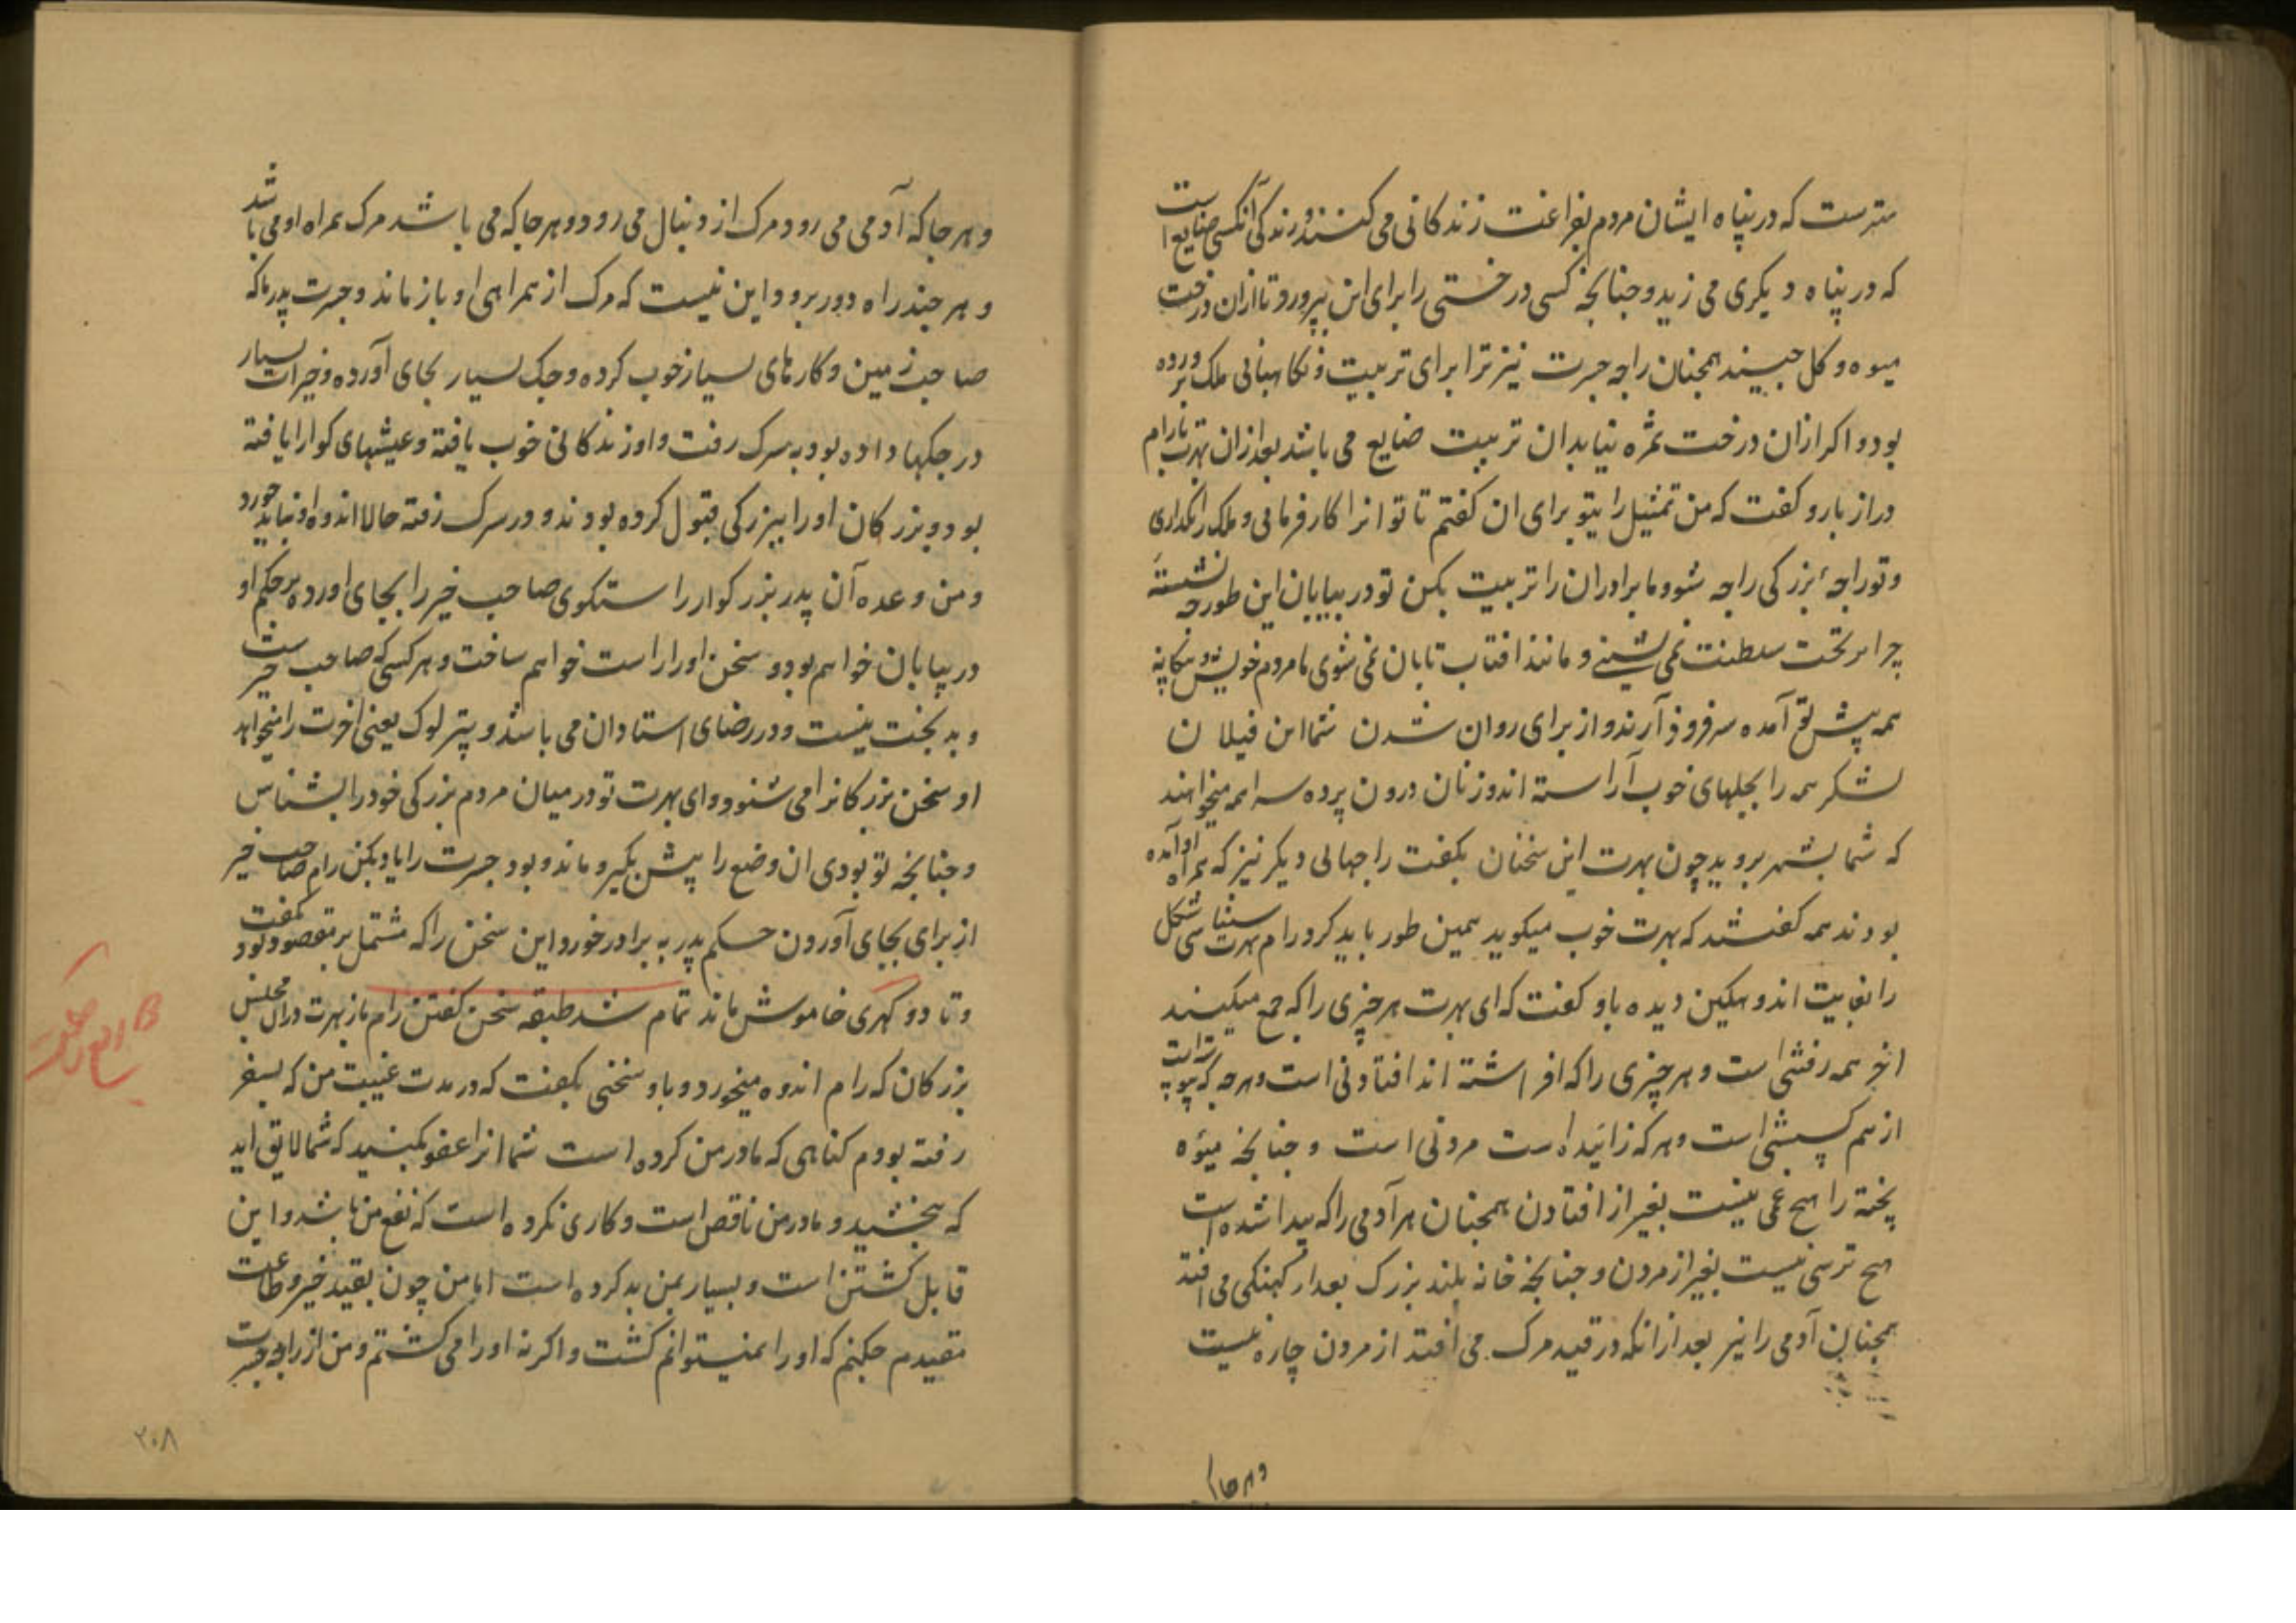 بهترست که در پناه ایشان مردم بفراغت زندکانی می کنند و زندکی آنکس ضایع است
که در پناه دیکری می زید و جنانجه کسی درختی را برای این بپرورد تا ازان درخت
میوه و کل جیند همجنان راجه جسرت نیز ترا برای تربیت و نکاهبانی ملک پرورده
بود و اکر ازان درخت ثمره نیابد ان تربیت ضایع می باشد بعد ازان بهرت با رام
دراز بازو کفت که من تمثیل را بتو برای ان کفتم تا تو انرا کار فرمائی و ملک را نکداری
و تو راجهٔ بزرکی راجه شو و ما برادران را تربیت بکن تو در بیابان این طور جه نشستهٔ
چرا بر تخت سلطنت نمی نشینی و مانند افتاب تابان نمی شوی تا مردم خویش و بیکانه
همه پیش تو آمده سر فرود آرند و از برای روان شدن شما این فیلان
لشکر همه را بجلهای خوب آراسته اند و زنان درون پرده سرا همه میخواهند
که شما بشهر بروید چون بهرت این سخنان بکفت راجهای دیکر نیز که همراه او آمده
بودند همه کفتند که بهرت خوب میکوید همین طور باید کرد رام بهرت
را بغایت اندوهکین دیده باو کفت که ای بهرت هر چیزی را که جمع میکنند
اخر همه رفتنی است و هر چیزی را که افراشته اند افتادنی است و هر جه که پیوسته است
از هم کسستنی است و هر که زائیده است مردنی است و جنانجه میوه
پخته را هیج غمی نیست بغیر از افتادن همجنان هر آدمی را که پیدا شده است
هیج ترسی نیست بغیر از مردن و جنانجه خانه بلند بزرک بعد از کهنکی می افتد
همجنان آدمی را نیز بعد از انکه در قید مرک می افتد از مردن چاره نیست
و هر جا
و هر جا که آدمی می رود مرک از دنبال می رود و هر جا که می باشد مرک همراه او می باشد
و هر جند راه دور برود این نیست که مرک از همراهی او باز ماند و جسرت پدر ما که
صاحب زمین و کارهای بسیار خوب کرده و جک بسیار بجای آورده و خیرات بسیار
در جکها داده بود به سرک رفت و او زندکانی خوب یافته و عیشهای کوارا یافته
بود و بزرکان او را ببزرکی قبول کرده بودند و در سرک رفته حالا اندوه او نباید خورد
و من وعده آن پدر بزرکوار راستکوی صاحب خیر را بجای اورده بر حکم او
در بیابان خواهم بود و سخن او را راست خواهم ساخت و هر کسی که صاحب خیر است
و بد بخت نیست و در رضای استادان می باشد و پتر لوک یعنی اخرت را میخواهد
او سخن بزرکانرا می شنود و ای بهرت تو در میان مردم بزرکی خود را بشناس
و جنانجه تو بودی ان وضع را پیش بکیر و مانند بود جسرت را یاد بکن رام صاحب خیر
از برای بجای آوردن حکم پدر به برادر خورد این سخن را که مشتمل بر مقصود بود کفت
و تا دو کهری خاموش ماند تمام شد طبقه سخن کفتن رام باز بهرت دران مجلس
بزرکان که رام اندوه میخورد و باو سخنی بکفت که در مدت غیبت من که بسفر
رفته بودم کناهی که مادر من کرده است شما انرا عفو بکنید که شما لایق اید
که ببخشید و مادر من ناقص است و کاری نکرده است که نفع من باشد و این
قابل کشتن است و بسیار بمن بد کرده است اما من چون بقید خیر و طاعت
مقیدم جکنم که او را نمیتوانم کشت و اکر نه او را می کشتم و من از راجه جسرت
۳۰۸